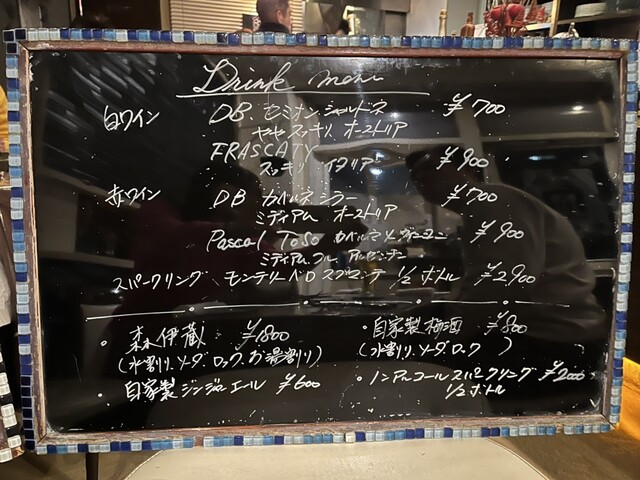 Drink menu
白ワイン DB セミオン、シャルドネ ¥700
やや スッキリ オーストリア
FRASCATY ¥900
スッキリ イタリア
赤ワイン DB カベルネシラー ¥700
ミディアム オーストリア
Pascal Toso カベルネソーヴィニヨン ¥900
ミディアムフル アルゼンチン
スパークリング モンテリーベロ スプマンテ 1/2 ボトル ¥2,900
・森伊蔵 ¥1800
(水割り、ソーダ、ロック、お湯割り)
・自家製ジンジャーエール ¥600
・自家製梅酒 ¥800
(水割り、ソーダ、ロック )
・ノンアルコール スパークリング ¥2000
1/2 ボトル